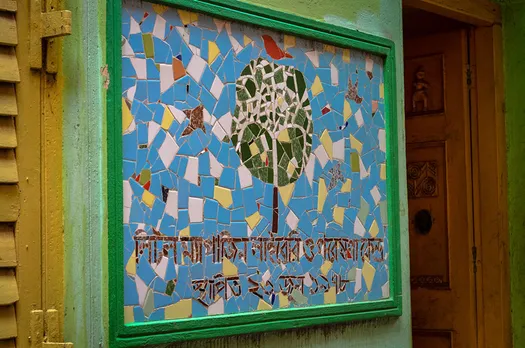 লিটল ম্যাগাজিন লাইব্রেরী ও গবেষণা কেন্দ্র
স্থাপিত ২৩ জুন ১৯৭৮